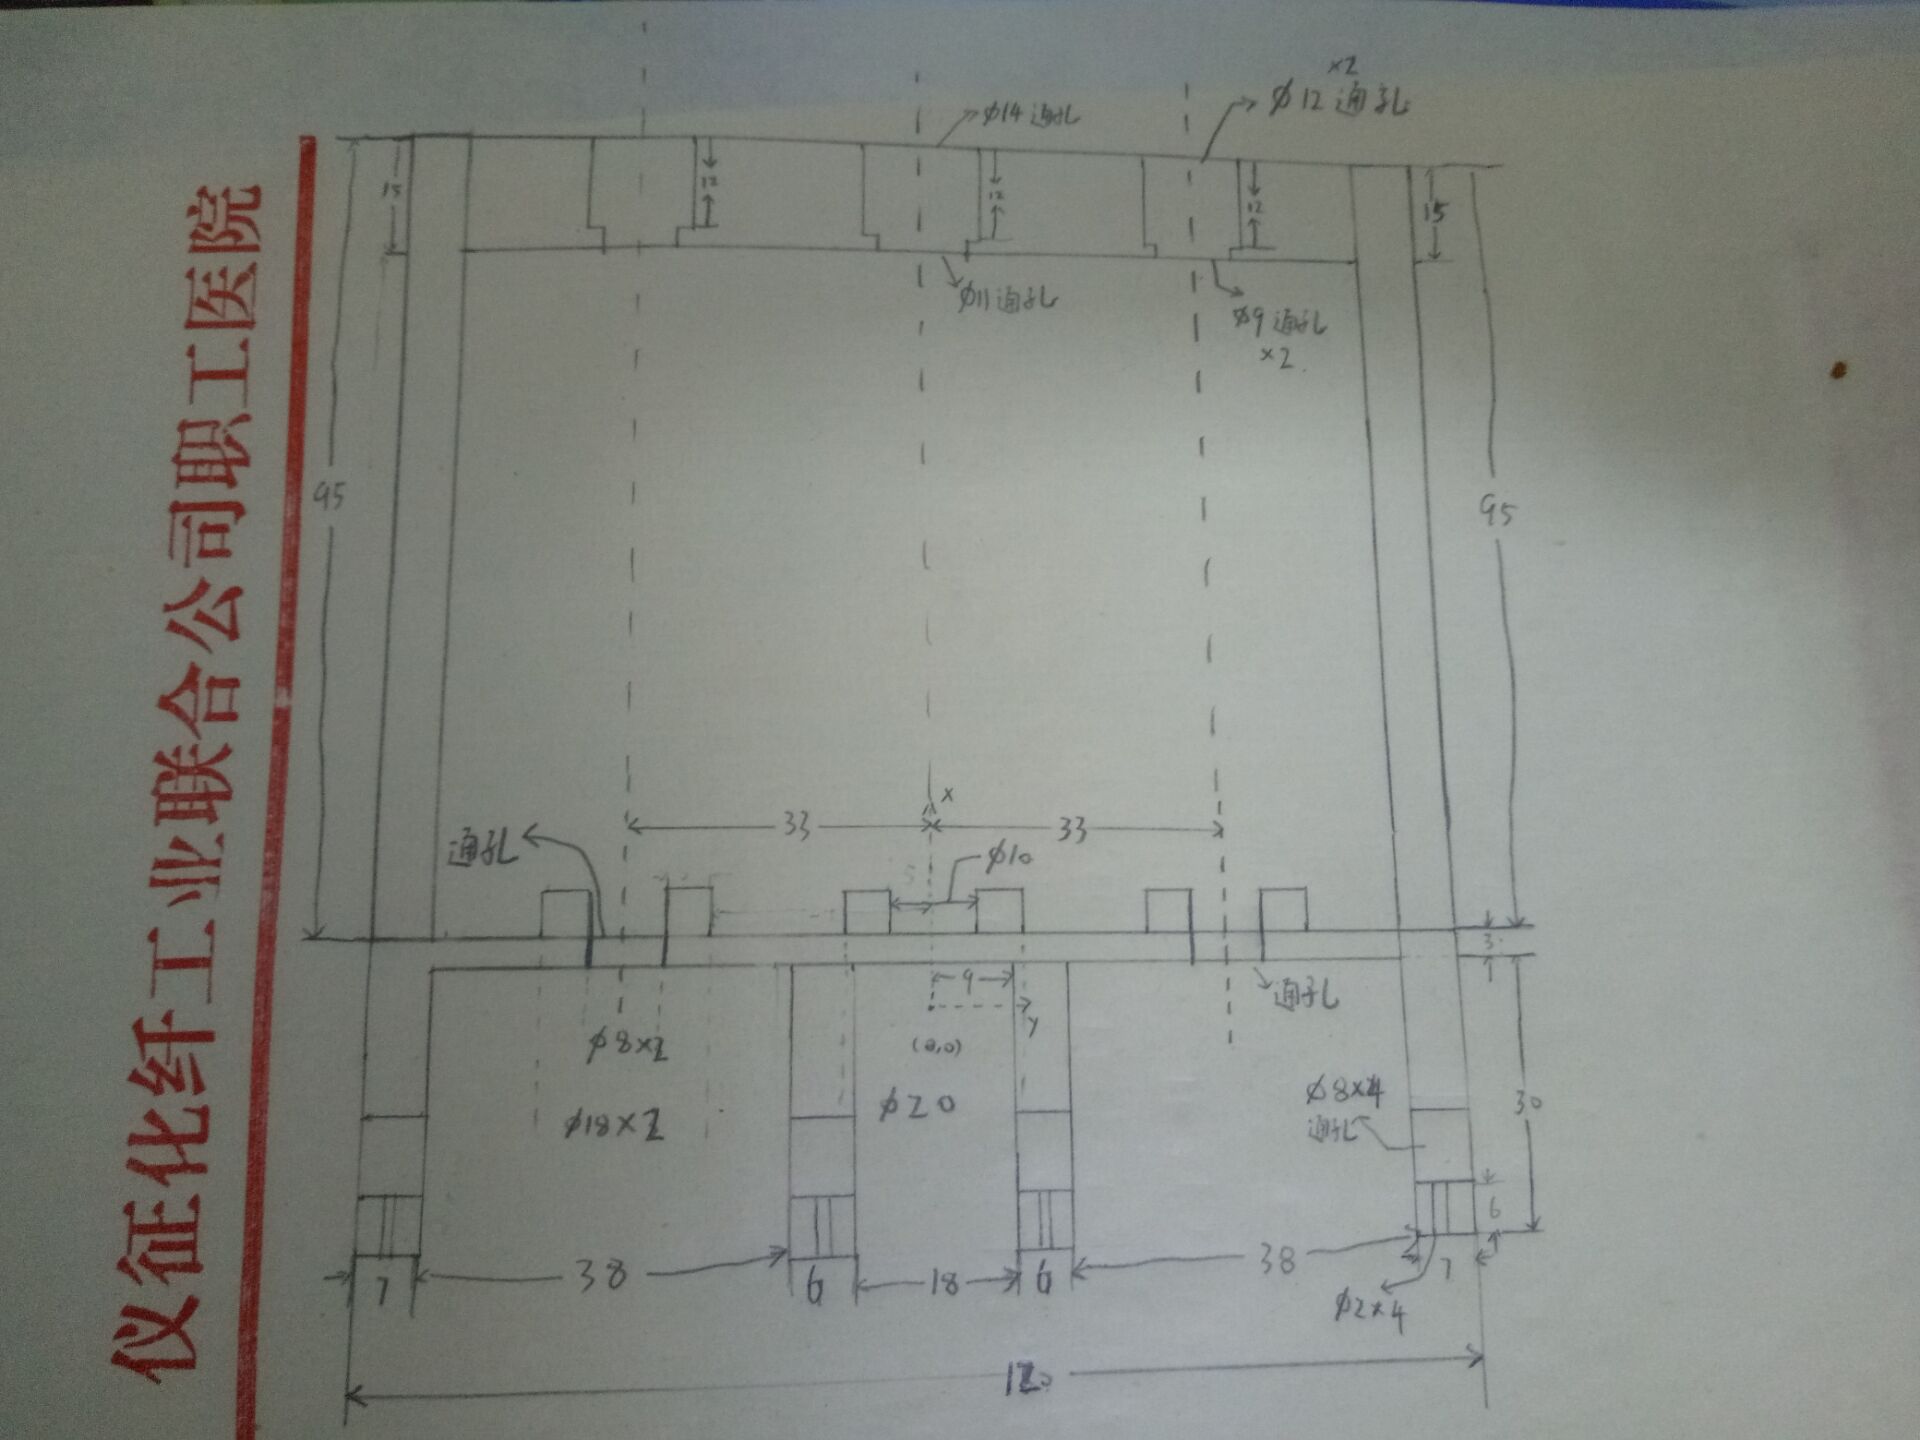 仪征化纤工业联合公司职工医院
×2
φ14通孔
φ12通孔
15
12
12
12
15
φ11通孔
φ9通孔
×2
95
95
x
33
33
通孔
φ10
5
3
9
通孔
y
(0,0)
φ8×2
φ20
φ8×4
通孔
30
φ18×2
6
7
38
6
18
6
38
7
φ2×4
120